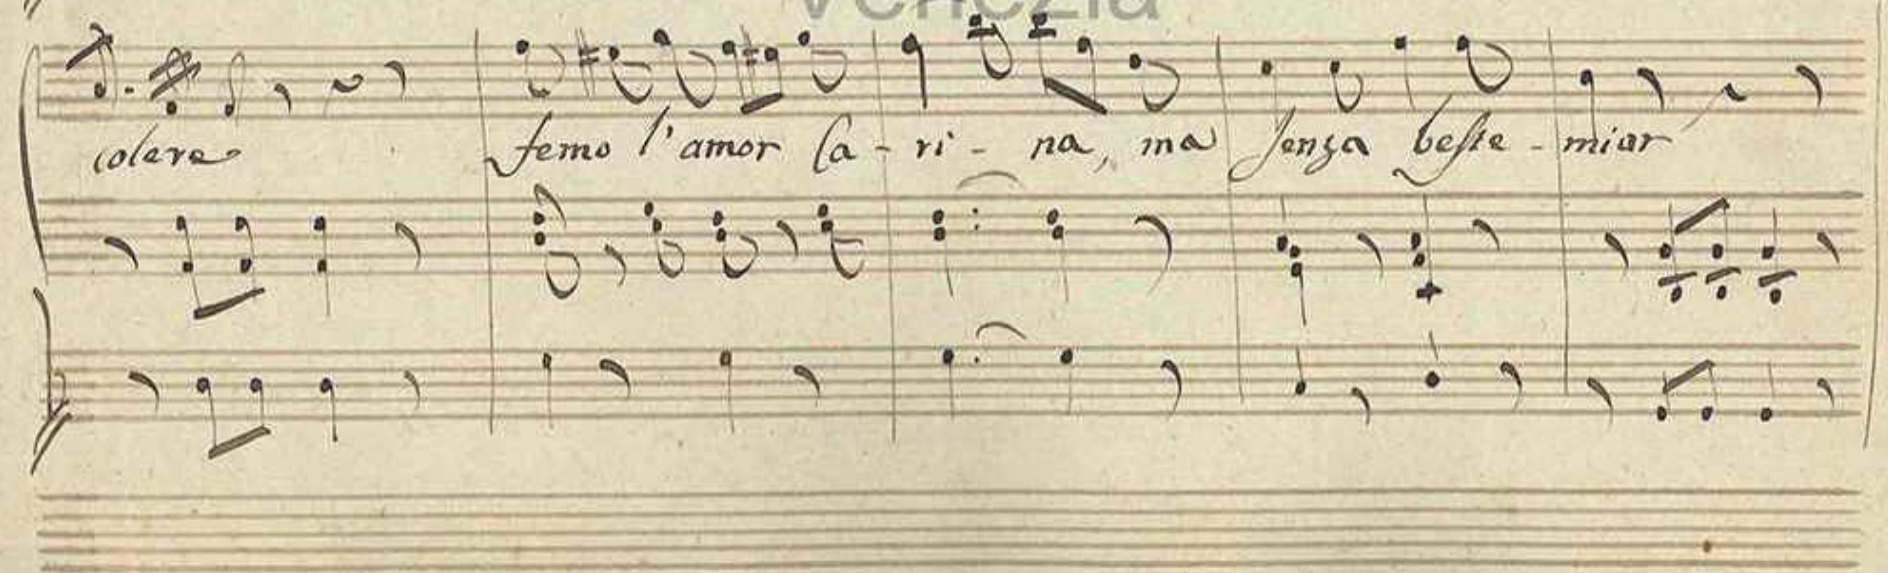 Venezia
colera femo l'amor Ca - ri - na, ma senza beste - miar